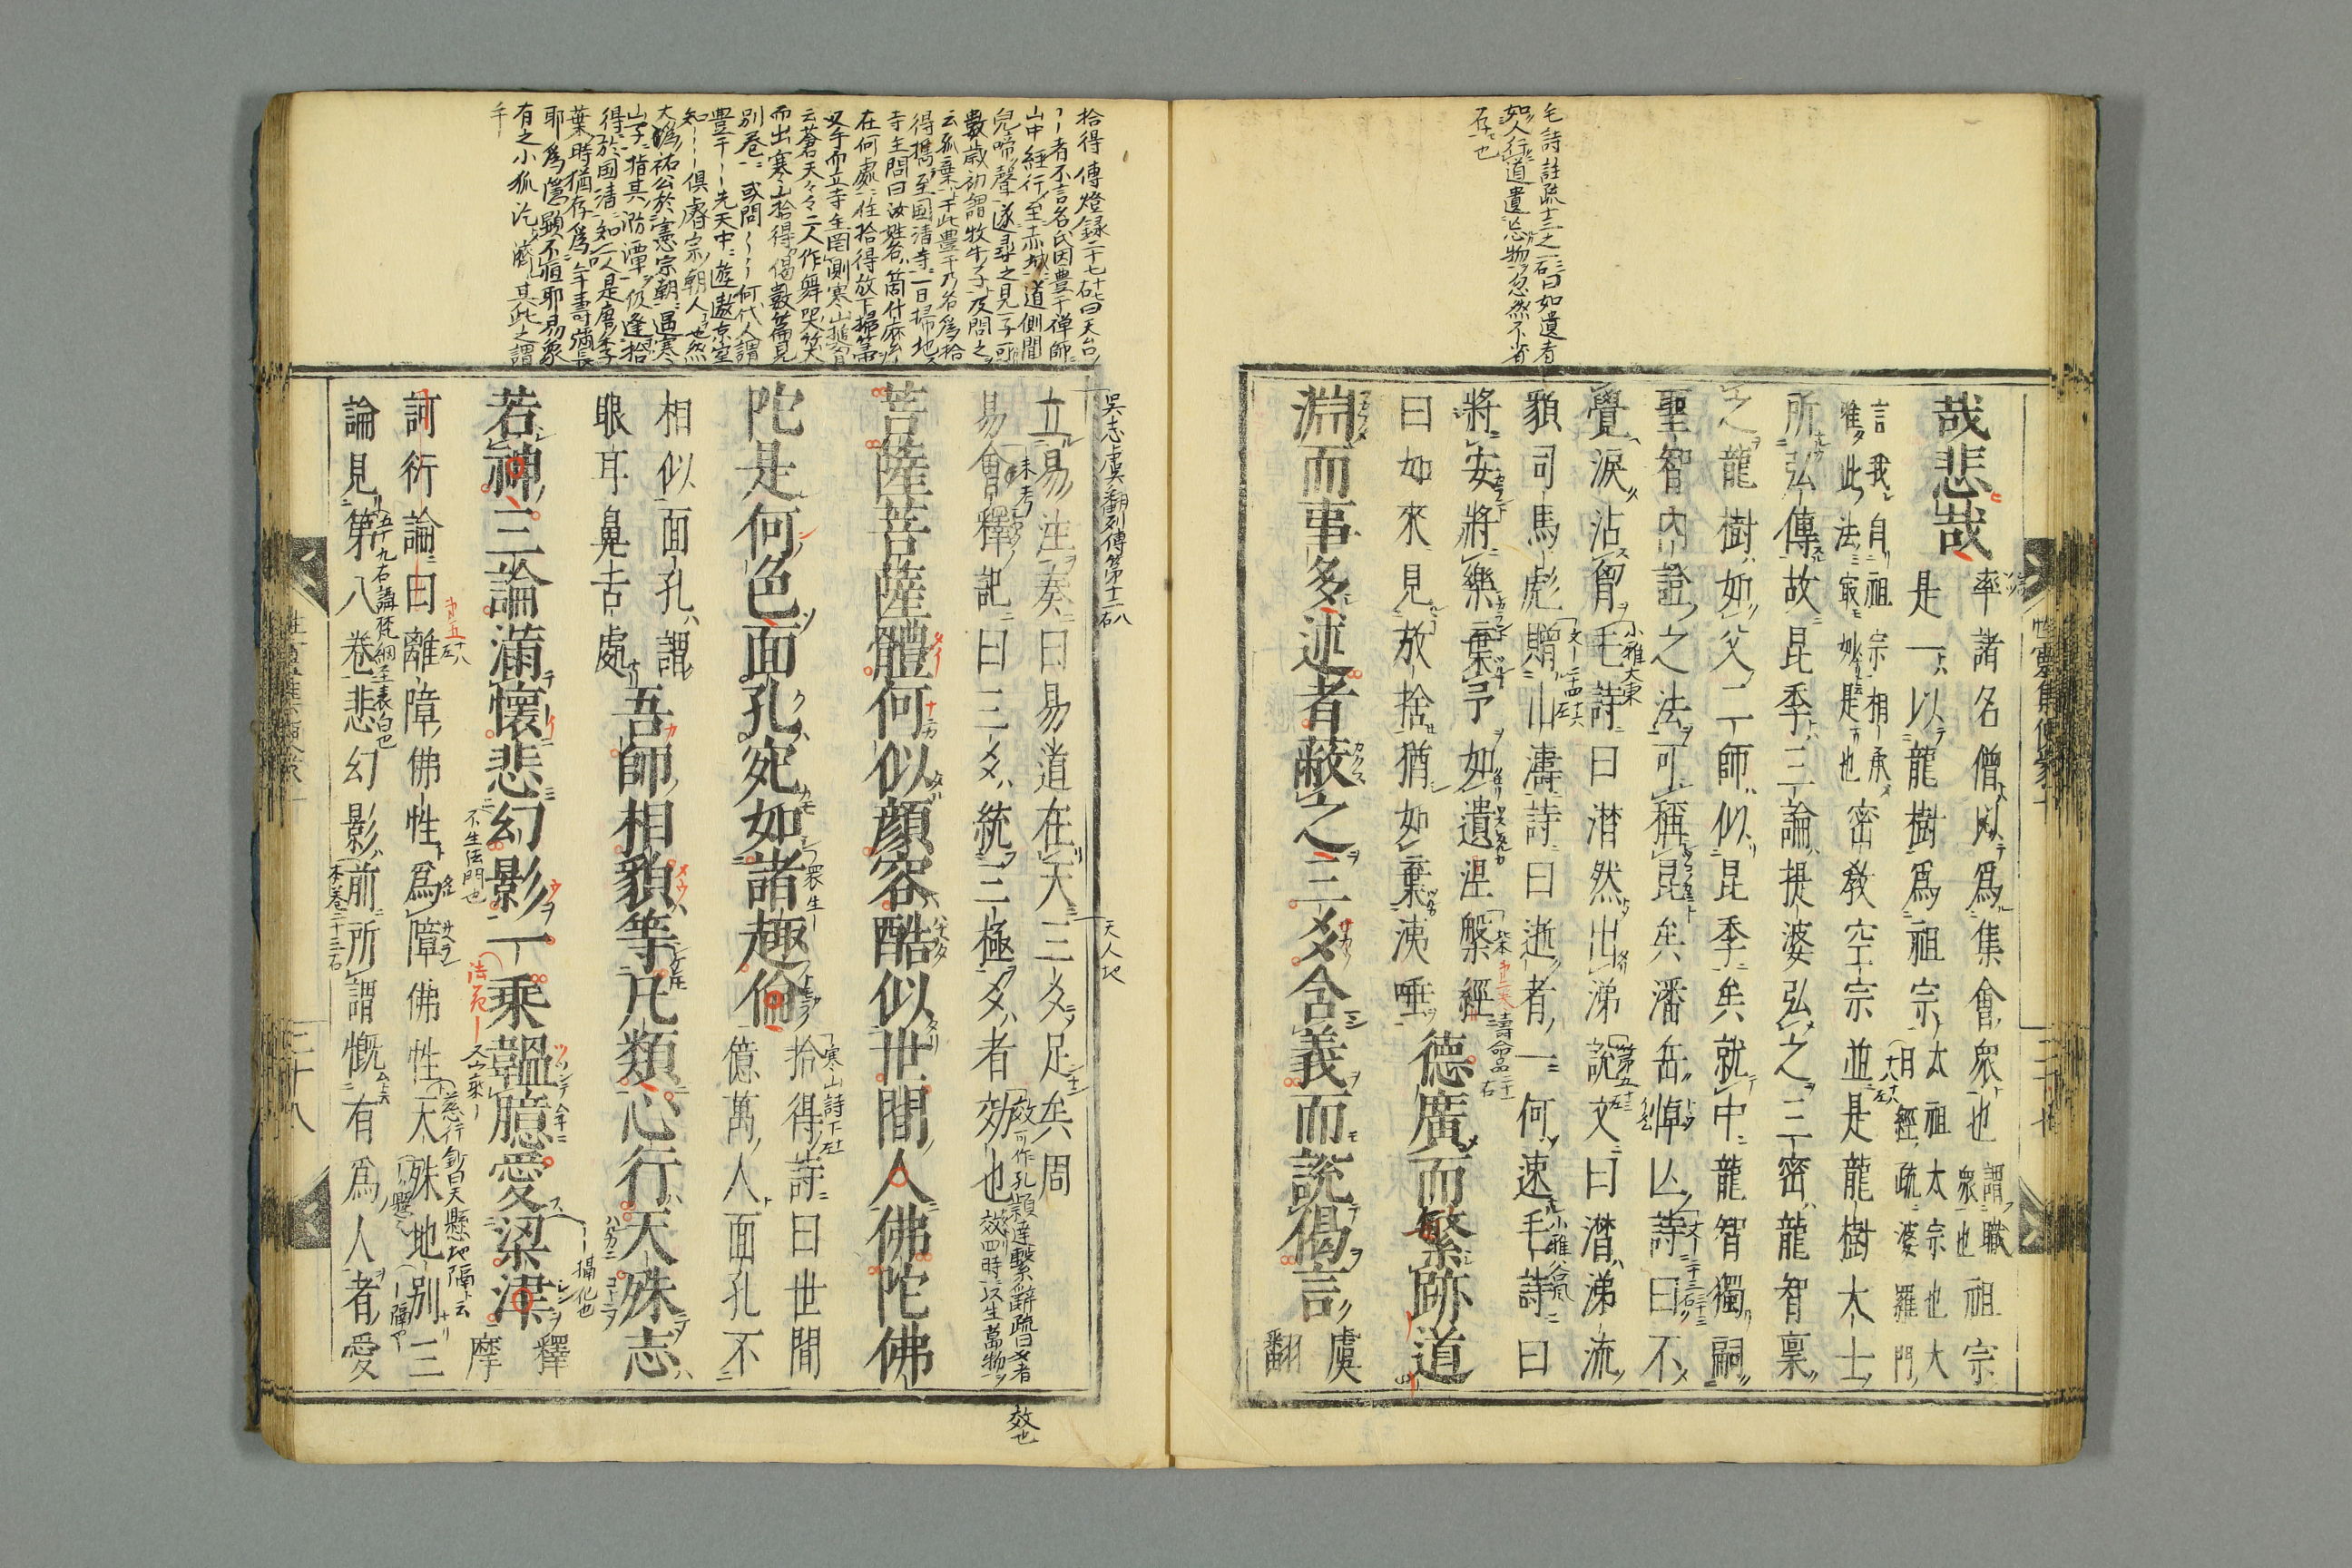 毛詩註疏十三之一曰如遺者
如人行道遺忘物忽然不省
存也
哉悲哉
率諸名僧以爲集會衆也
謂職
衆也
祖宗
是一以龍樹爲祖宗
太祖太宗也大
日經疏婆羅門
言我自祖宗相承
唯此法最妙是也
密教空宗並是龍樹大士
所弘傳故昆季三論提婆弘之三密龍智稟
之龍樹如父二師似昆季矣就中龍智獨嗣
聖智內證之法可稱昆矣潘岳悼亡詩曰不
覺淚沾胷毛詩曰潸然出涕說文曰潸涕流
貌司馬彪贈山濤詩曰逝者一何速毛詩曰
小雅大東
小雅谷風
將安將樂棄予如遺涅槃經
曰如來見放捨猶如棄洟唾
德廣而繁跡道
淵而事多述者蔽之三爻含義而說偈言
虞
翻
拾得傳燈錄二十七曰天台
者不言名氏因豊干禅師
山中経行至赤城道側聞
兒啼聲遂尋之見一子可
數歲初謂牧牛子及問之
云孤棄于此豊干乃名爲拾
得携至國清寺一日掃地
寺主問曰汝姓名箇什麼
在何處住拾得放下掃箒
叉手而立寺主罔測寒山搥胷
云蒼天々々二人作舞哭笑
而出寒山拾得偈數篇見
別巻或問何代人謂
豊干先天中遊遨京室
知俱睿宗朝人也然
大潙祐公於憲宗朝遇寒
山子指其泐潭仍逢拾
得於國清知二人是唐季
葉時猶存爲年壽弥長
耶爲隱顯不恒耶易象
有之小狐汔濟其此之謂
乎
吳志虞翻列傳第十二
天人地
立易注奏曰易道在天三爻足矣周
易會釋記曰三爻統三極爻者効也
未考
效可作孔穎達繫辭疏曰爻者
效四時以生萬物
效也
菩薩菩薩體何似顏容酷似世間人佛陀佛
陀是何色面孔宛如諸趣倫
衆生
拾得詩曰世間
億萬人面孔不
寒山詩下
相似面孔謂
眼耳鼻舌處
吾師相貌等凡類心行天殊志
若神三論滿懷悲幻影一乘韞臆愛梁津
不生法門也
法花
釋
摩
訶衍論曰離障佛性爲障佛性天殊地別三
慈行鈔曰天懸地隔云
論見第八巻悲幻影前所謂慨有爲人者愛
右講梵網至表白也
本巻二十三右